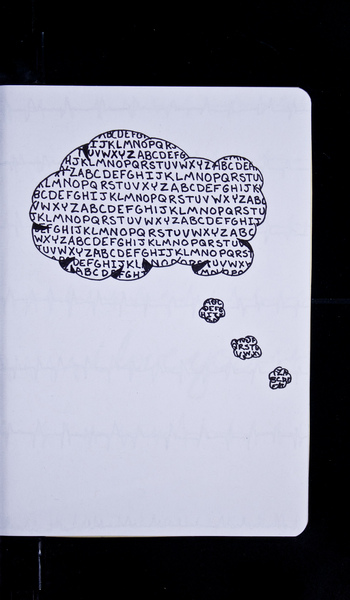 ABCDEFG
IJKLMNOPQRST
UVWXYZABCDEFG
HIJKLMNOPQRSTUVWXYZABCDEF
YZABCDEFGHIJKLMNOPQRSTUV
KLMNOPQRSTUVWXYZABCDEFGHIJK
BCDEFGHIJKLMNOPQRSTUVWXYZ
VWXYZABCDEFGHIJKLMNOPQRSTUVWXYZABC
JKLMNOPQRSTUVWXYZABCDEFGHIJKL
DEFGHIJKLMNOPQRSTUVWXYZABC
WXYZABCDEFGHIJKLMNOPQRSTU
TUVWXYZABCDEFGHIJKLMNOPQR
DEFGHIJKLM
TUVWXYZ
ABCD
EFGH
MNOPQ
ABC
DEFG
HIJK
NOP
RSTU
VWX
YZA
BCDE